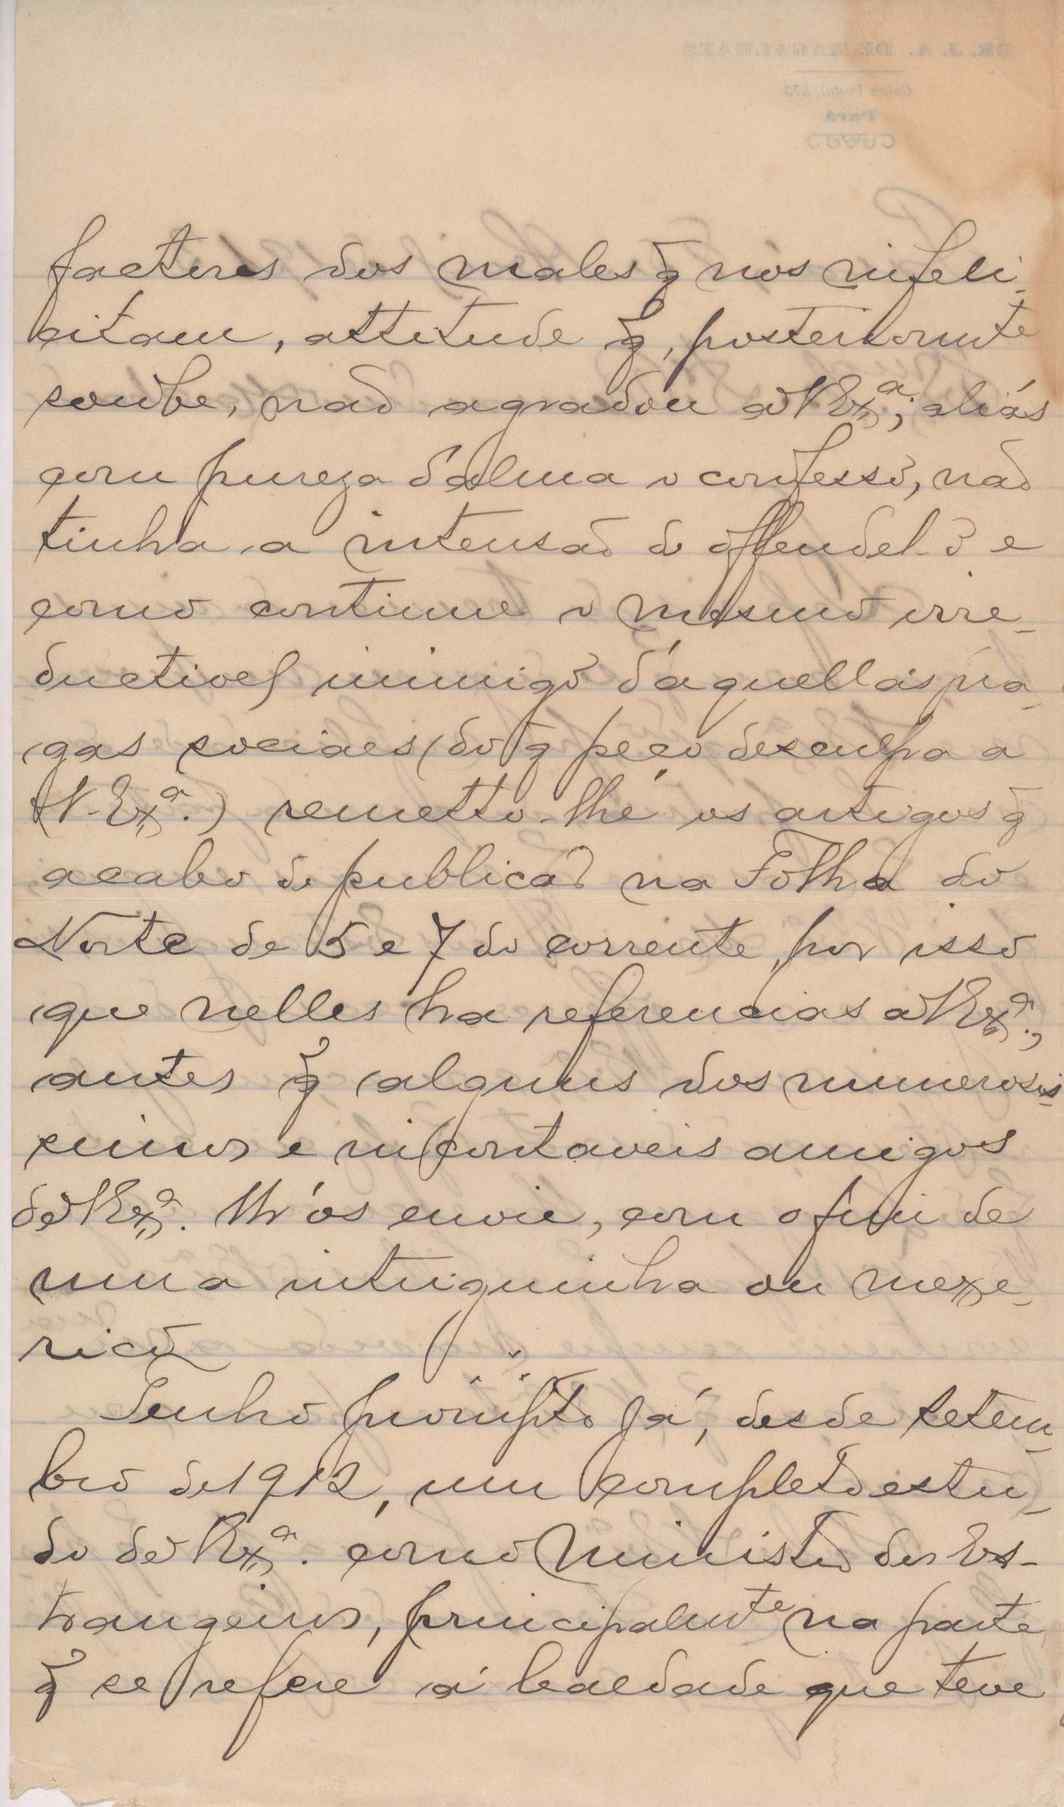 factores dos males q̃ nos infeli-
citam, attitude q̃, posteriormte
soube, não agradou a V Exa; aliás
com pureza d'alma o confesso, não
tinha a intensão de offendel-o e
como continue o mesmo irre-
ductivel inimigo d'aquellas pra-
gas sociaes (do q̃ peço desculpa a
V. Exa.) remetto-lhe os artigos q̃
acabo de publicar na Folha do
Norte de 5 e 7 do corrente, por isso
que nelles ha referencias a V Exa.,
antes q̃ alguns dos numerosis-
simos e incontaveis amigos
de V Exa. lh'os envie, com o fim de
uma intriguinha ou mexe-
rico
Tenho prompto já, desde setem-
bro de 1912, um completo estu-
do de V Exa. como Ministro dos Es-
trangeiros, principalmte na parte
q̃ se refere á lealdade que teve